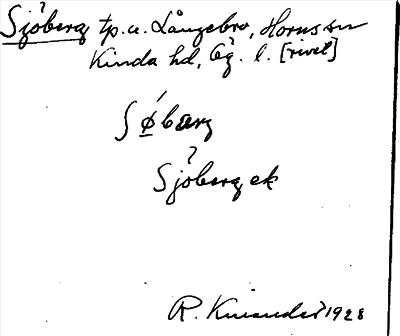 Sjöberg tp. u. Långebro, Horns sn
Kinda hd, Ög. l. [rivet]
ʃøbærg
Sjöberg ek
R. Kinander 1928